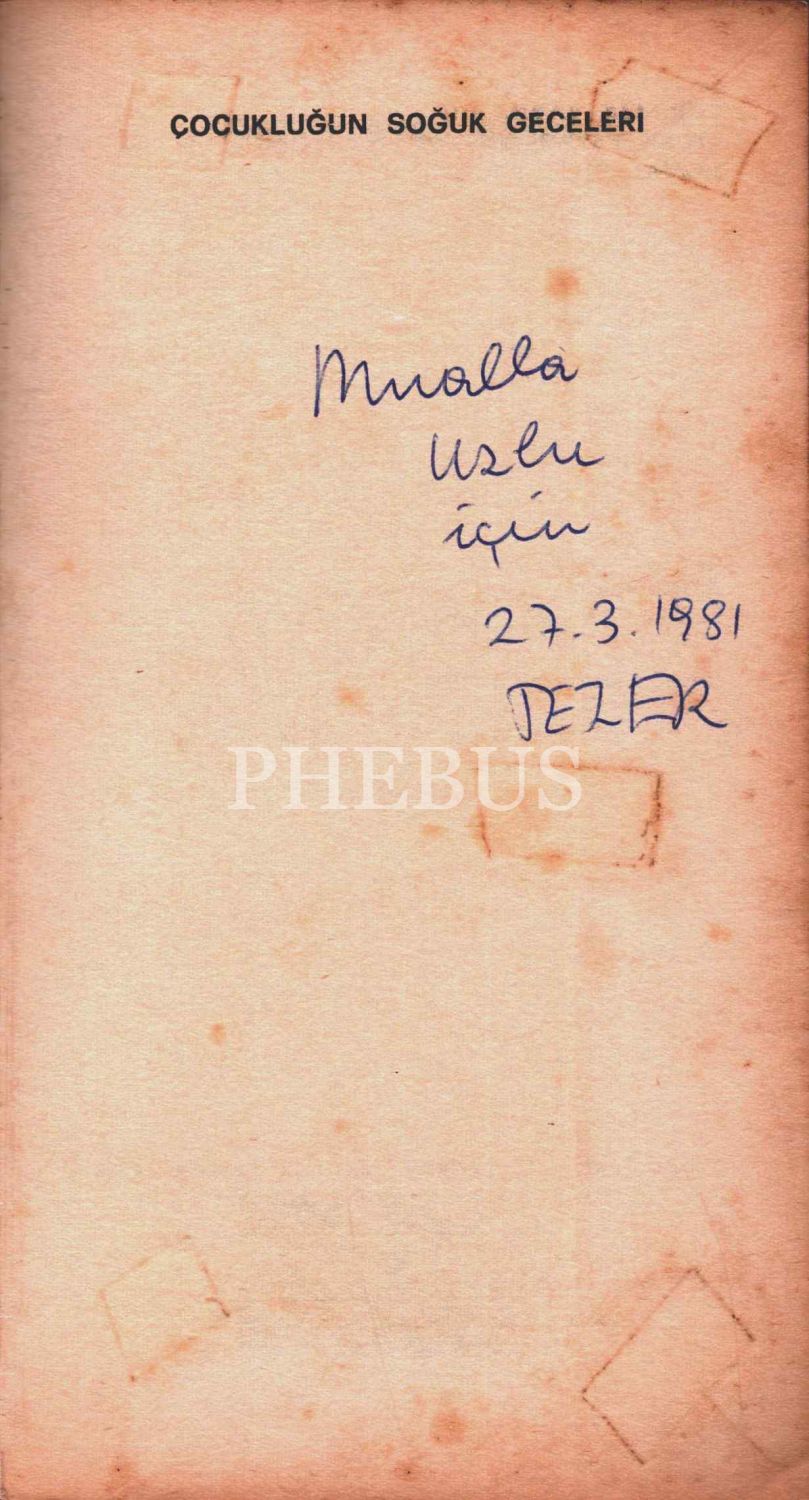 ÇOCUKLUĞUN SOĞUK GECELERİ
Mualla
Uslu
için
27.3.1981
TEZER
PHEBUS